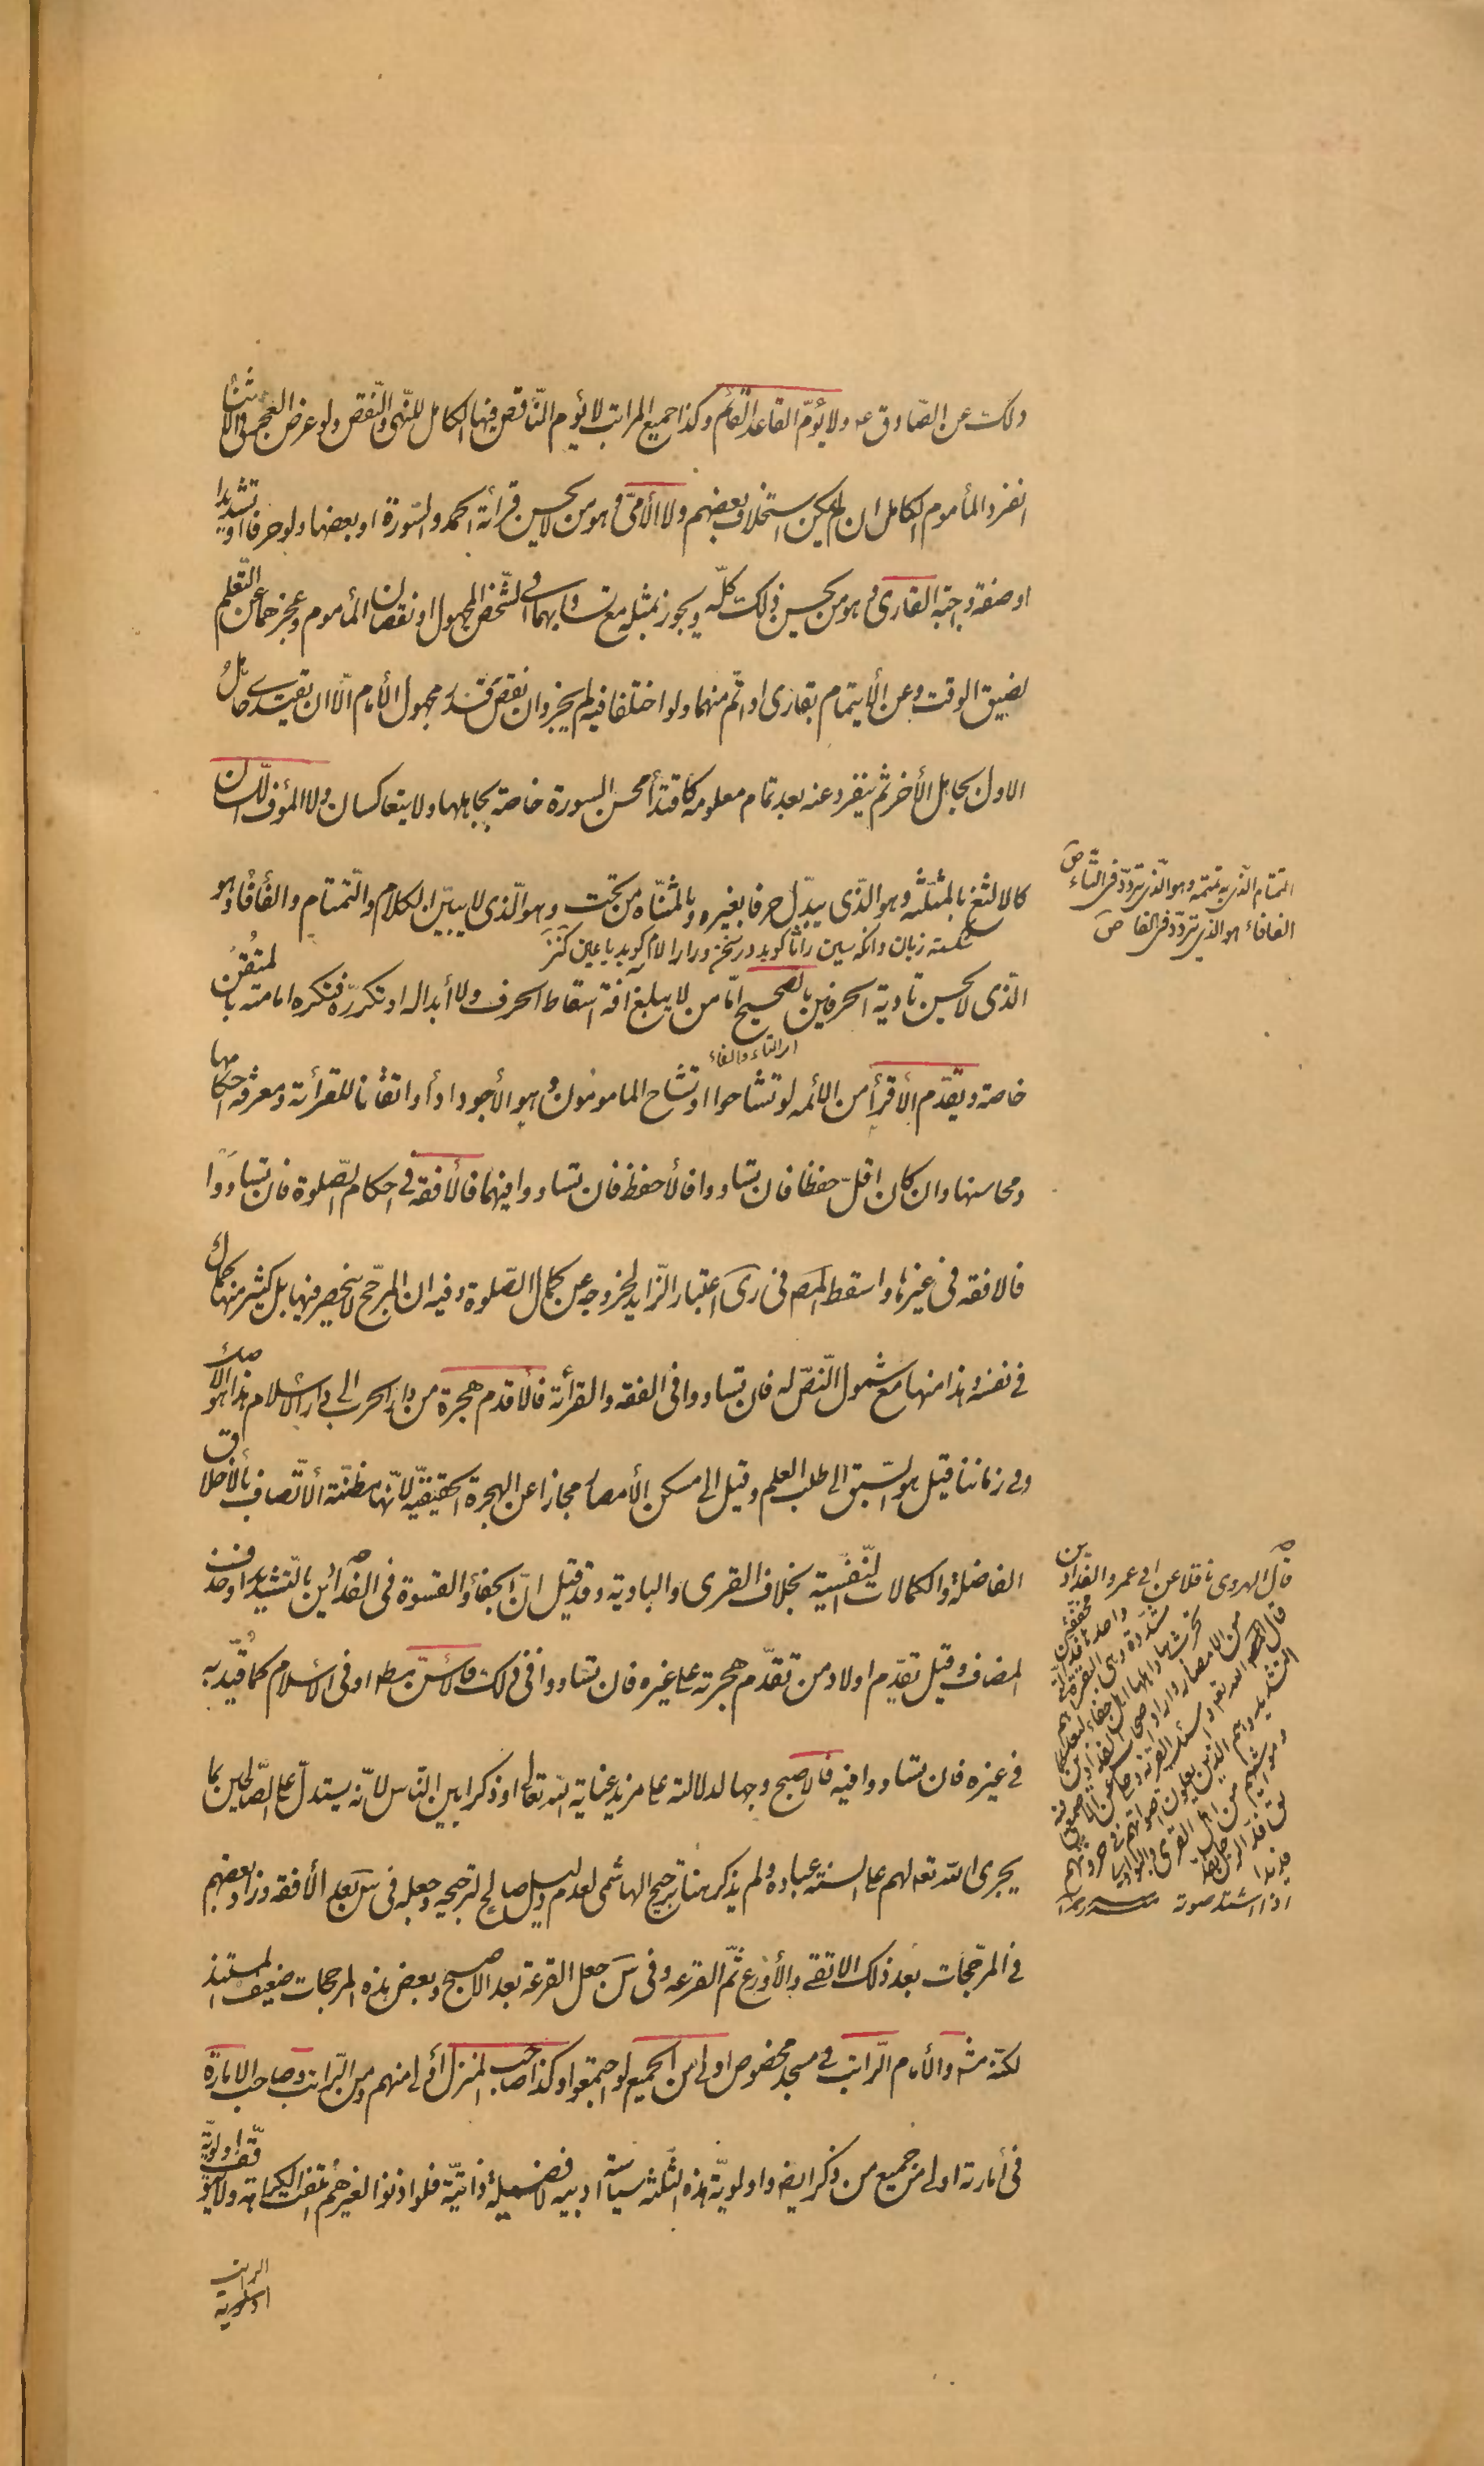 ذلك عن الصّادق عه ولا يؤمّ القاعد القائم وكذا جميع المراتب لا يؤم النّاقص فيها الكامل للنّهى والنّقص ولو عرض العجز فى الاثناء
انفرد المأموم الكامل ان لم يمكن استخلاف بعضهم ولا الأمّى وهو من لا يحسن قرائة الحمد والسّورة او بعضها ولو حرفا او تشديدا
او صفة واجبة القارى وهو من يحسن ذلك كلّه ويجوز بمثله مع تساويهما فى الشّخص المجهول او نقصان المأموم وعجزهما عن التّعلم
لضيق الوقت وعن الأيتمام بقارى او اتّم منهما ولو اختلفا فيه لم يجز وان نقص قدر مجهول الأمام الّا ان يقتدى جاهلُ
الاول بجاهل الأخر ثم ينفرد عنه بعد تمام معلومه كاقتدأ محسن السورة خاصة بجاهلها ولا يتعاكسان ولا المؤف اللّسان
كالالثغ بالمثلّثه وهو الّذى يبدّل حرفا بغيره وبالمثنّاه من تحت وهو الّذى لا يبيّن الكلام والتّمتام والفأفأ وهو
شكسته زبان وانكه سين را ثا كويد در سخن ورا را لام كويد يا عين كنز
الذى لا يحسن تادية الحرفين بالصحيح امّا من لا يبلغ آفة اسقاط الحرف ولا أبداله او تكرّره فتكره امامته بالمتقن
اى التاء والفاء
خاصة ويقدّم الأقرأ من الائمه لو تشاحوا او تشاح المامومون وهو الأجود ادأ واتقانا للقرأئة ومعرفة احكامها
ومحاسنها وان كان اقلّ حفظا فان تساووا فالأحفظ فان تساووا فيهما فالأفقه فى احكام الصّلوة فان تساووا
فالافقه فى غيرها واسقط المص فى رى اعتبار الزّايد لخروجه عن كمال الصّلوة وفيه ان المرجّح لا ينحصر فيها بل كثير منها كمال
فى نفسه وهذا منها مع شمول النّصّ له فان تساووا فى الفقه والقرأئة فالأقدم هجرة من دار الحرب الى دار الاسلام هذا هو الاصل
وفى زماننا قيل هو السّبق الى طلب العلم وقيل الى سكنى الأمصار مجازا عن الهجرة الحقيقيّه لانّها مظنّة الأتّصاف بالأخلاق
الفاضلة والكمالات النّفسية بخلاف القرى والبادية وقد قيل انّ الجفأ والقسوة فى الفدادين بالتشديد او حذف
المضاف وقيل تقدّم اولاد من تقدّم هجرته على غيره فان تساووا فى ذلك فالاسنّ مطلقا او فى الاسلام كما قيّد به
فى غيره فان تساووا فيه فالاصبح وجها لدلالته على مزيد عناية الله تعالى او ذكرا بين النّاس لانّه يستدلّ على الصّالحين بما
يجرى الله تعه لهم على السنة عباده ولم يذكر هنا ترجيح الهاشمى لعدم دليل صالح لترجيحه وجعله فى س بعد الأفقه وزاد بعضهم
فى المرجّحات بعد ذلك الاتقى والأورع ثمّ القرعه وفى س جعل القرعة بعد الاصبح وبعض هذه المرجحات ضعيف المستند
لكنّه مشهور والأمام الرّاتب فى مسجد مخصوص اولى من الجميع لو اجتمعوا وكذا صاحب المنزل أولى منهم ومن الرّاتب وصاحب الامارة
فى أمارته اولى من جميع من ذكر ايضا واولويّة هذه الثلثه سياسة ادبيه لا فضيلة ذاتيّة فلو اذنوا لغيرهم انتفت الكراهة ولا يتوقّف اولويّة
الراتب
اولوية
التمتام الّذى به تمتمه وهو الّذى تردّد فى التّاء ص
الفافاء هو الذى تردّد فى الفا ص
قال الهروى ناقلا عن ابى عمرو الفدادين
مخففين واحدها فداد
اذا اشتد صوته